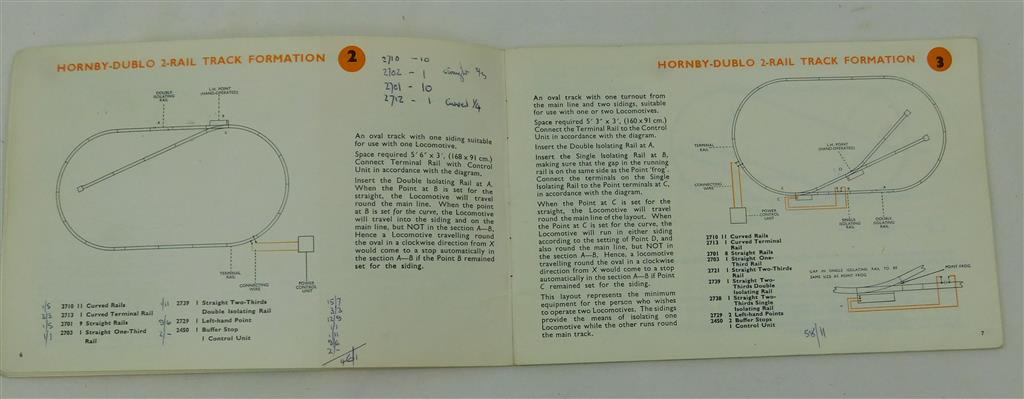 HORNBY-DUBLO 2-RAIL TRACK FORMATION
2
2710 - 10
2702 - 1 straight
2701 - 10
2712 - 1 Curved 1/4
DOUBLE
ISOLATING
RAIL
L.H. POINT
(HAND-OPERATED)
A
TERMINAL
RAIL
CONNECTING
WIRE
POWER
CONTROL
UNIT
An oval track with one siding suitable
for use with one Locomotive.
Space required 5′ 6″ x 3′, (168 x 91 cm.)
Connect Terminal Rail with Control
Unit in accordance with the diagram.
Insert the Double Isolating Rail at A.
When the Point at B is set for the
straight, the Locomotive will travel
round the main line. When the point
at B is set for the curve, the Locomotive
will travel into the siding and on the
main line, but NOT in the section A—B.
Hence a Locomotive travelling round
the oval in a clockwise direction from X
would come to a stop automatically in
the section A—B if the Point B remained
set for the siding.
2710 11 Curved Rails
2713 1 Curved Terminal Rail
2701 9 Straight Rails
2703 1 Straight One-Third
Rail
2739 1 Straight Two-Thirds
Double Isolating Rail
2729 1 Left-hand Point
2450 1 Buffer Stop
1 Control Unit
6
HORNBY-DUBLO 2-RAIL TRACK FORMATION
3
An oval track with one turnout from
the main line and two sidings, suitable
for use with one or two Locomotives.
Space required 5′ 3″ x 3′, (160 x 91 cm.)
Connect the Terminal Rail to the Control
Unit in accordance with the diagram.
Insert the Double Isolating Rail at A.
Insert the Single Isolating Rail at B,
making sure that the gap in the running
rail is on the same side as the Point ‘frog’.
Connect the terminals on the Single
Isolating Rail to the Point terminals at C,
in accordance with the diagram.
When the Point at C is set for the
straight, the Locomotive will travel
round the main line of the layout. When
the Point at C is set for the curve, the
Locomotive will run in either siding
according to the setting of Point D, and
also round the main line, but NOT in
the section A—B. Hence, a locomotive
travelling round the oval in a clockwise
direction from X would come to a stop
automatically in the section A—B if Point
C remained set for the siding.
This layout represents the minimum
equipment for the person who wishes
to operate two Locomotives. The sidings
provide the means of isolating one
Locomotive while the other runs round
the main track.
TERMINAL
RAIL
L.H. POINT
(HAND-OPERATED)
CONNECTING
WIRE
POWER
CONTROL
UNIT
SINGLE
ISOLATING
RAIL
DOUBLE
ISOLATING
RAIL
2710 11 Curved Rails
2713 1 Curved Terminal
Rail
2701 8 Straight Rails
2703 1 Straight One-
Third Rail
2721 1 Straight Two-Thirds
Rail
2739 1 Straight Two-
Thirds Double
Isolating Rail
2738 1 Straight Two-
Thirds Single
Isolating Rail
2729 2 Left-hand Points
2450 2 Buffer Stops
1 Control Unit
GAP IN SINGLE ISOLATING RAIL TO BE
SAME SIDE AS POINT FROG
POINT FROG
58/11
7